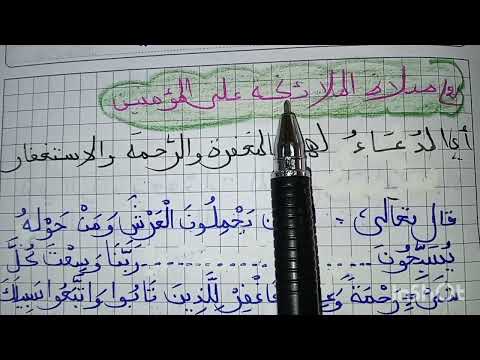 صلاة الملائكة على المؤمنين
أي الدُعَاءُ لهم المغفرة والرَّحمة والاستغفار
قال تعالى: يَحْمِلُونَ الْعَرْشَ وَمَنْ حَوْلَهُ
يُسَبِّحُونَ ............ رَبَّنَا وَسِعْتَ كُلَّ
شَيْءٍ رَحْمَةً فَاغْفِرْ لِلَّذِينَ تَابُوا وَاتَّبَعُوا سَبِيلَكَ